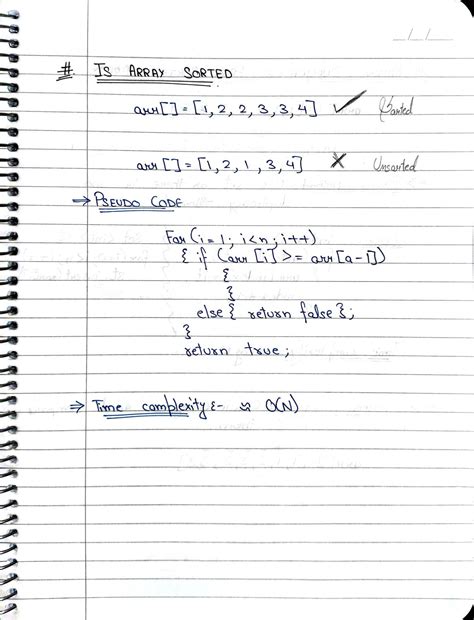 _/_/_
# IS ARRAY SORTED
arr[] = [1, 2, 2, 3, 3, 4] ✓ Sorted
arr[] = [1, 2, 1, 3, 4] ✗ Unsorted
⇒ PSEUDO CODE
For (i = 1; i < n; i++)
{ if (arr[i] >= arr[a-1])
{
}
else { return false };
}
return true;
⇒ Time complexity :- ≈ O(N)